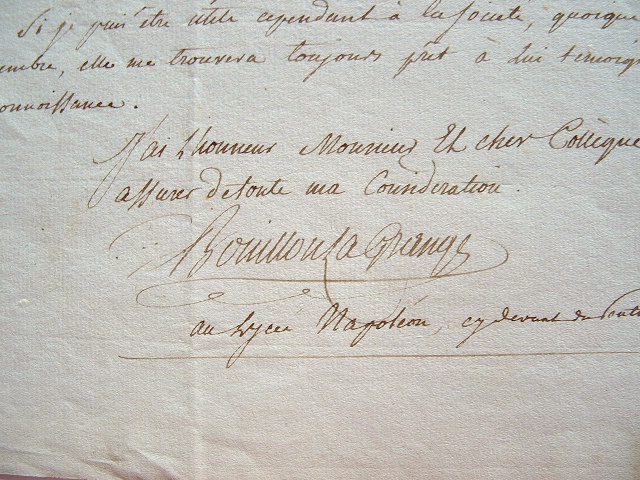 Si je puis être utile cependant à la société, quoique
embre, elle me trouvera toujours prêt à lui témoig
onnoissance.
J'ai l'honneur Monsieur Et cher Collègue
assurer de toute ma Considération.
Bouillon La Grange
au Lycée Napoléon, cy devant du